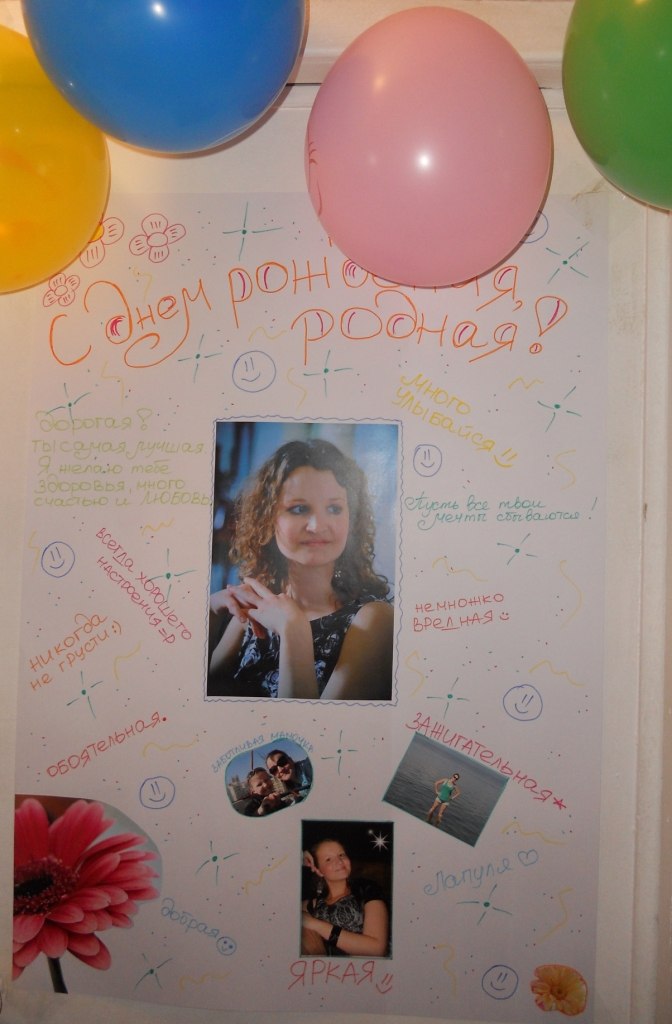 С Днем рождения,
родная!
Дорогая!
Ты самая лучшая.
Я желаю тебе
здоровья, много
счастья и ЛЮБОВЬ
много
улыбайся
Пусть все твои
мечты сбываются!
всегда хорошего
настроения =р
немножко
вредная
никогда
не грусти :)
ОБОЯТЕЛЬНАЯ.
ЗАБОТЛИВАЯ МАМОЧКА
ЗАЖИГАТЕЛЬНАЯ
Лапуля
добрая
ЯРКАЯ